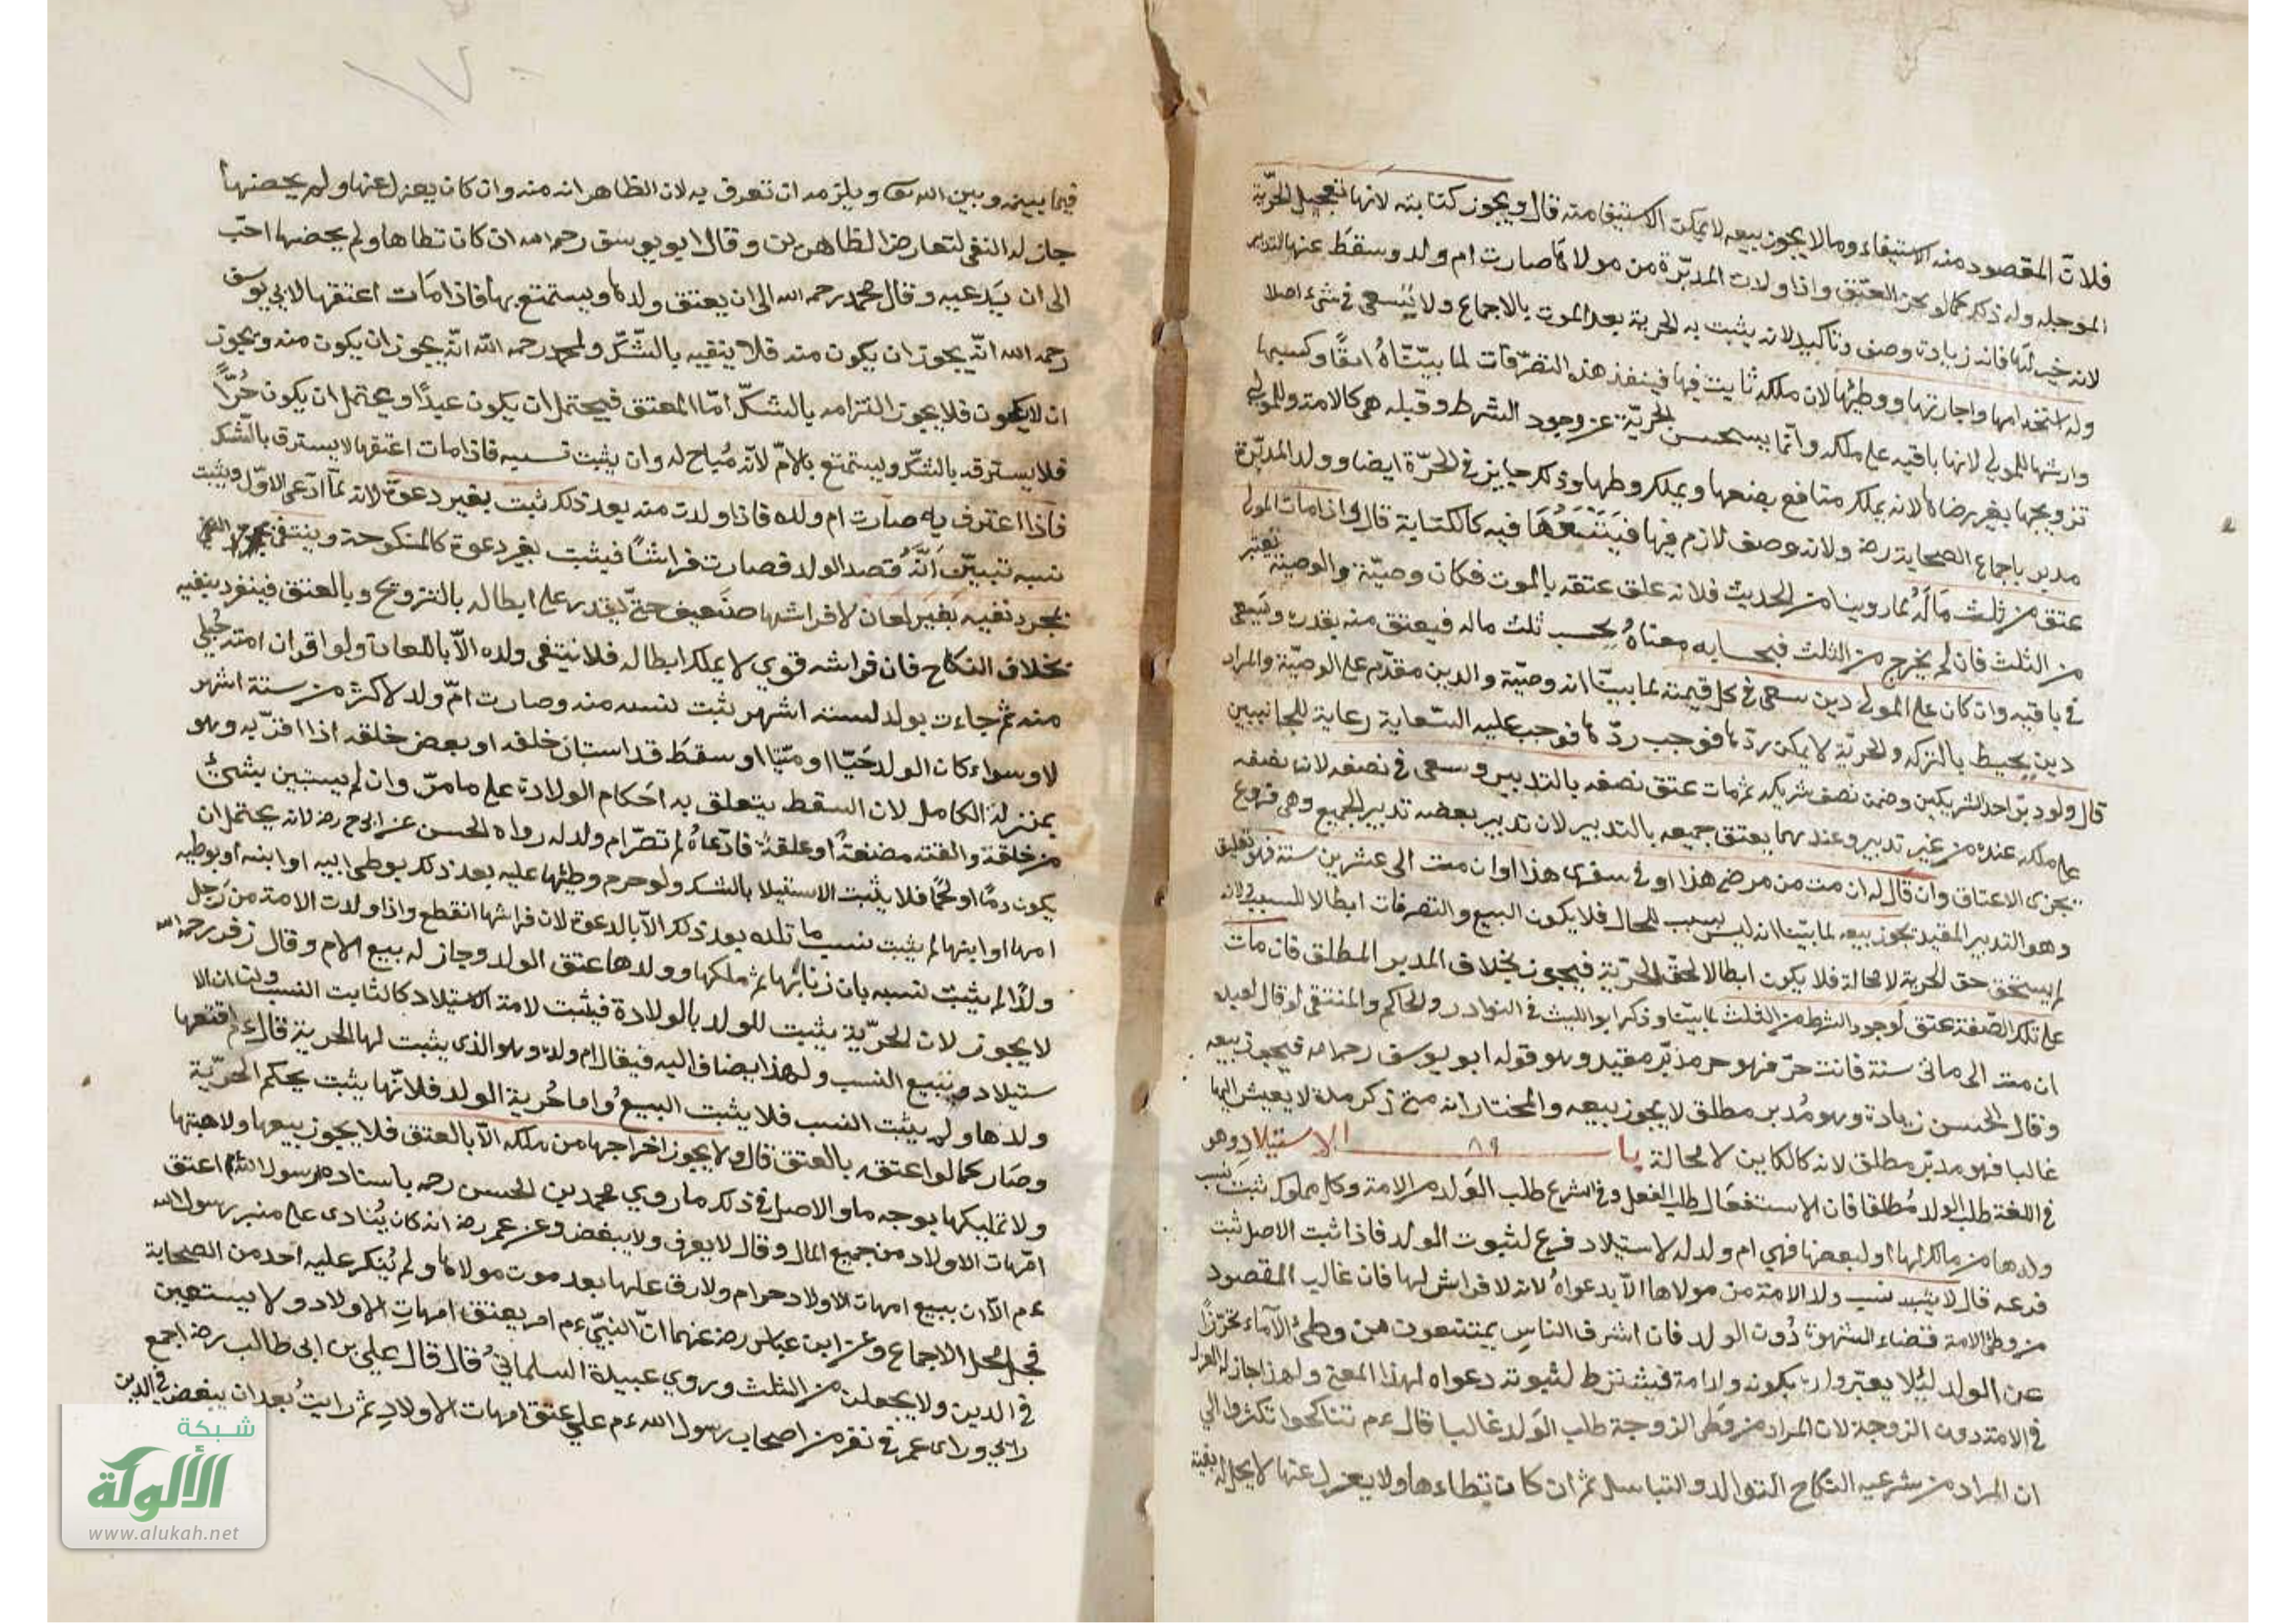 فلان المقصود منه الاستيفاء وما لا يجوز بيعه لا يمكن الاستيفا منه قال ويجوز كتابته لانها تعجيل الحرّية
الموجله وله ذكر كما لو نجز العتق واذا ولدت المدبّرة من مولاها صارت ام ولد وسقط عنها التدبير
لانه خير لها فانه زيادة وصف وتاكيد لانه يثبت به الحرية بعد الموت بالاجماع ولا يسعى في شيء اصلا
وله استخدامها واجارتها ووطئها لان ملكه ثابت فيها فينفذ هذه التصرّفات لما بيّنّاه انفًا وكسبها
وارشها للمولى لانها باقيه على ملكه وانّما يستحسن الحريّة عند وجود الشرط وقبله هي كالامة وللمولى
تزويجها بغير رضاها لانه يملك منافع بضعها ويملك وطيها وذلك جايز في الحرّة ايضا وولد المدبّرة
مدبر باجماع الصحابة رضـ ولانه وصف لازم فيها فيتبعها فيه كالكتابة قال واذا مات المولى
عتق من ثلث ماله لما روينا من الحديث فلانه علق عتقه بالموت فكان وصيّة والوصية تعتبر
من الثلث فان لم يخرج من الثلث فبحسابه معناه يحسب ثلث ماله فيعتق منه بقدره ويسعى
في باقيه وان كان على المولى دين سعى في كل قيمته لما بيّنّا انه وصيّة والدين مقدّم على الوصيّة والمراد
دين يحيط بالتركه والحريّة لا يمكن ردّها فوجب ردّها فوجب عليه السّعاية رعاية للجانبين
قال ولو دبّر احد الشريكين وضمن نصف شريكه ثم مات عتق نصفه بالتدبير وسعى في نصفه لان نصفه
على ملكه عنده من غير تدبير وعندهما يعتق جميعه بالتدبير لان تدبير بعضه تدبير الجميع وهي فروع
تجزى الاعتاق وان قال له ان مت من مرضى هذا او في سفرى هذا او ان مت الى عشرين سنة فهو تعليق
وهو التدبير المقيد يجوز بيعه لما بيّنا انه ليس بسبب للحال فلا يكون البيع والتصرفات ابطالا للسبب لانه
لم يستحق حق الحرية لا محالة فلا يكون ابطالا لحق الحريّة فيجوز بخلاف المدبر المطلق فان مات
على تلك الصّفة عتق لوجود الشرط من الثلث لما بيّنا وذكر ابو الليث في النوادر والحاكم والمنتقى لو قال لعبده
ان مت الى مائتى سنة فانت حرّ فهو حر مدبّر مقيد وهو قول ابو يوسف رحمه الله فيجوز بيعه
وقال الحسن زيادة وهو مُدبر مطلق لا يجوز بيعه والمختار انه متى ذكر مدة لا يعيش اليها
غالبا فهو مدبّر مطلق لانه كالكاين لا محالة باب الاستيلاد وهو
في اللغة طلب الولد مُطلقا فان الاستفعال طلب الفعل وفي الشرع طلب الوَلد من الامة وكل مملوكة ثبت نسب
ولدها من مالك لها او لبعضها فهي ام ولد له لاستيلاد فرع لثبوت الولد فاذا ثبت الاصل ثبت
فرعه قال لا يثبت نسب ولد الامة من مولاها الّا بدعواه لانه لا فراش لها فان غالب المقصود
من وطئ الامة قضاء الشهوة دُون الولد فان اشرف الناس يمتنعون من وطئ الآماء تحرّزًا
عن الولد لئلا يعيّر ولده بكونه ولد امة فيشترط لثبوته دعواه لهذا المعنى ولهذا جاز له العزل
في الامة دون الزوجة لان المراد من وطى الزوجة طلب الوَلد غالبا قال ءم تناكحوا تكثروا الي
ان المراد من شرعيه النكاح التوالد والتناسل ثم ان كان تطاءها ولا يعزل عنها لا يحل له نفيه
فيما بينه وبين الله تعـ ويلزمه ان تعرف به لان الظاهر انه منه وان كان يعزل عنها ولم يحصنها
جاز له النفي لتعارض الظاهرين وقال ابو يوسف رحمه الله ان كان تطاها ولم يحصنها احبّ
الى ان يَدعيه وقال محمد رحمه الله الى ان يعتق ولدها ويستمتع بها فاذا مات اعتقها لابي يوسف
رحمه الله انّه يجوز ان يكون منه فلا ينفيه بالشّكّ ولمحمد رحمه الله انّه يجوز ان يكون منه ويجوز
ان لا يكون فلا يجوز التزامه بالشكّ امّا المعتق فيحتمل ان يكون عبدًا ويحتمل ان يكون حُرًّا
فلا يسترقه بالشكّ ويستمتع بالامّ لانّه مُباح له وان يثبت نسبه فاذا مات اعتقها لا يسترق بالشك
فاذا اعترف به صارت ام ولده فاذا ولدت منه بعد ذلك ثبت بغير دعوة لانه لمّا ادّعى الاوّل ويثبت
نسبه تبيّن انّه قصد الولد فصارت فراشًا فيثبت بغير دعوة كالمنكوحة وينتفى بمجرد النفي
بمجرد نفيه بغير لعان لا فراشها ضعيف حتى يقدر على ابطاله بالتزويج وبالعتق فينفرد بنفيه
بخلاف النكاح فان فراشه قوي لا يملك ابطاله فلا ينتفى ولده الّا باللعان ولو اقر ان امته حُبلى
منه ثم جاءت بولد لستة اشهر يثبت نسبه منه وصارت امّ ولد لاكثر من ستة اشهر
لا وسواء كان الولد حَيّا او ميّتا او سقطَ قد استبان خلقه او بعض خلقه اذا اقرّ به وهو
بمنزلة الكامل لان السقط يتعلق به احكام الولادة على ما مرّ وان لم يستبين بشيئ
من خلقة والقته مضغةً او علقةً فادّعاهُ لم تصّر ام ولد له رواه الحسن عن ابى ح رضـ لانه يحتمل ان
يكون دمًا او لحمًا فلا يثبت الاستيلا بالشك ولو حرم وطئها عليه بعد ذلك بوطى ابيه او ابنه او بوطيه
امها او ابنها لم يثبت نسب ما تلده بعد ذلك الّا بالدعوة لان فراشها انقطع واذا ولدت الامة من رَجل
ولدًا لم يثبت نسبه بان زنا بها ثم ملكها وولدها عتق الولد وجاز له بيع الام وقال زفر رحمه الله
لا يجوز لان الحرّية يثبت للولد بالولادة فيثبت لامة الاستيلاد كالثابت النسب ولنا ان الا
ستيلاد يتبع النسب ولهذا يضاف اليه فيقال ام ولده وهو الذى يثبت لها الحرية قال ءم اعتقها
ولدها ولم يثبت النسب فلا يثبت البيع واما حُرية الولد فلانّها يثبت بحكم الحرّية
وصَار كما لو اعتقه بالعتق قال ولا يجوز اخراجها من ملكه الّا بالعتق فلا يجوز بيعها ولا هبتها
ولا تمليكها بوجه ما والاصل في ذلك ما روي محمد بن الحسن رحمه باسناده رسول الله اعتق
امّهات الاولاد من جميع المال وقال لا يعرف ولا يبغض وعن عمر رضـ انه كان يُنادى على منبر رسول الله
ءم الآ ان بيع امهات الاولاد حرام ولا رق علها بعد موت مولاها ولم يُنكر عليه احد من الصحابة
فحل محل الاجماع وعن ابن عباس رضـ عنهما انّ النبيّ ءم امر بعتق امهات الاولاد ولا يستعين
في الدين ولا يجعلن من الثلث وروي عبيدة السلمانيُ قال قال علي بن ابى طالب رضـ اجمع
رايي وراى عمر في نفر من اصحاب رسول الله ءم على عتق امهات الاولاد ثم رايتُ بعد ان يبغض في الدين
شبكة
الألوكة
www.alukah.net